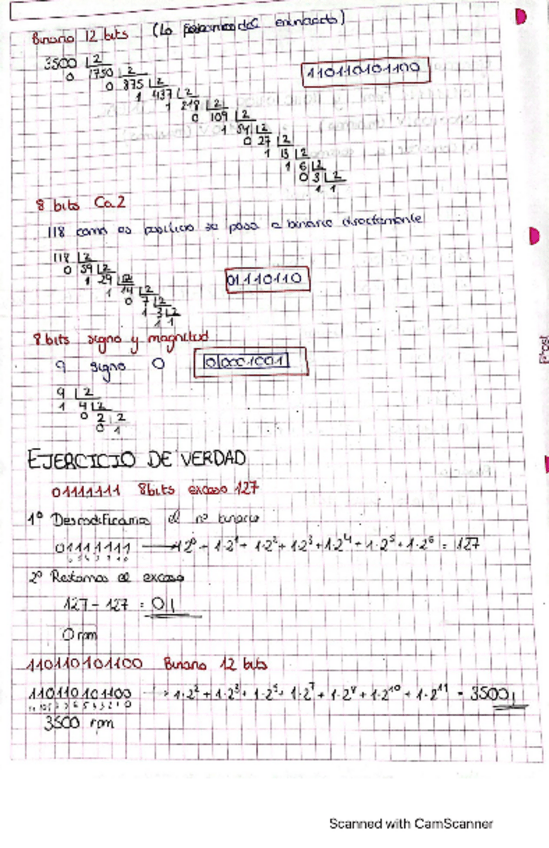 Binario 12 bits (Lo enunciado)
3500 | 2
0 1750 | 2
0 875 | 2
1 437 | 2
1 218 | 2
0 109 | 2
1 54 | 2
0 27 | 2
1 13 | 2
1 6 | 2
0 3 | 2
1 1
110110101100
8 bits Ca2
118 como es positivo se pasa a binario directamente
118 | 2
0 59 | 2
1 29 | 2
1 14 | 2
0 7 | 2
1 3 | 2
1 1
01110110
8 bits signo y magnitud
9 signo 0 0|0001001
9 | 2
1 4 | 2
0 2 | 2
0 1
EJERCICIO DE VERDAD
01111111 8bits exceso 127
1º Descodificamos el nº binario
01111111 → 1·2⁰ + 1·2¹ + 1·2² + 1·2³ + 1·2⁴ + 1·2⁵ + 1·2⁶ = 127
6 5 4 3 2 1 0
2º Restamos el exceso
127 - 127 = 0
0 rpm
110110101100 Binario 12 bits
110110101100 → 1·2² + 1·2³ + 1·2⁵ + 1·2⁷ + 1·2⁸ + 1·2¹⁰ + 1·2¹¹ = 3500
11 10 9 8 7 6 5 4 3 2 1 0
3500 rpm
Scanned with CamScanner